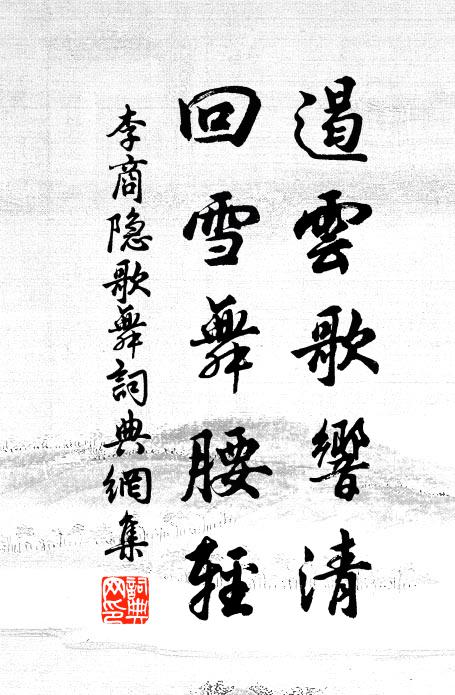 遏雲歌響清
回雪舞腰輕
李商隐歌舞詞典網集
詞典網印